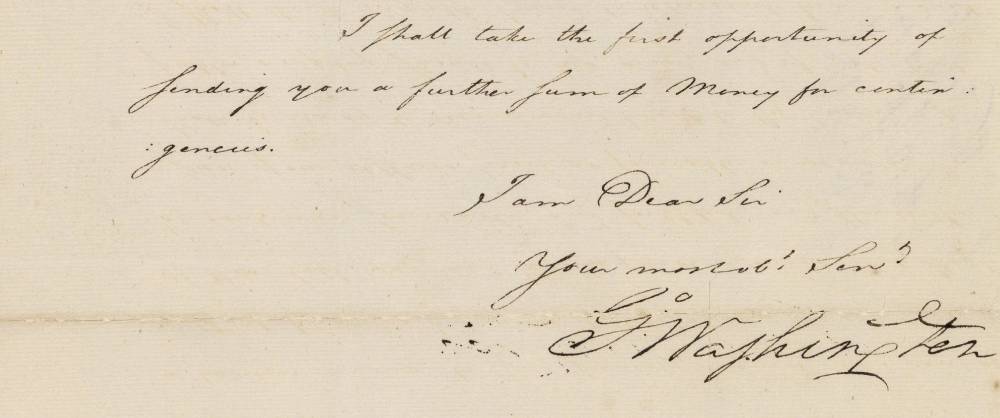 I shall take the first opportunity of
sending you a further sum of Money for contin :
: gencies.
I am Dear Sir
Your most obt Servt
Go Washington